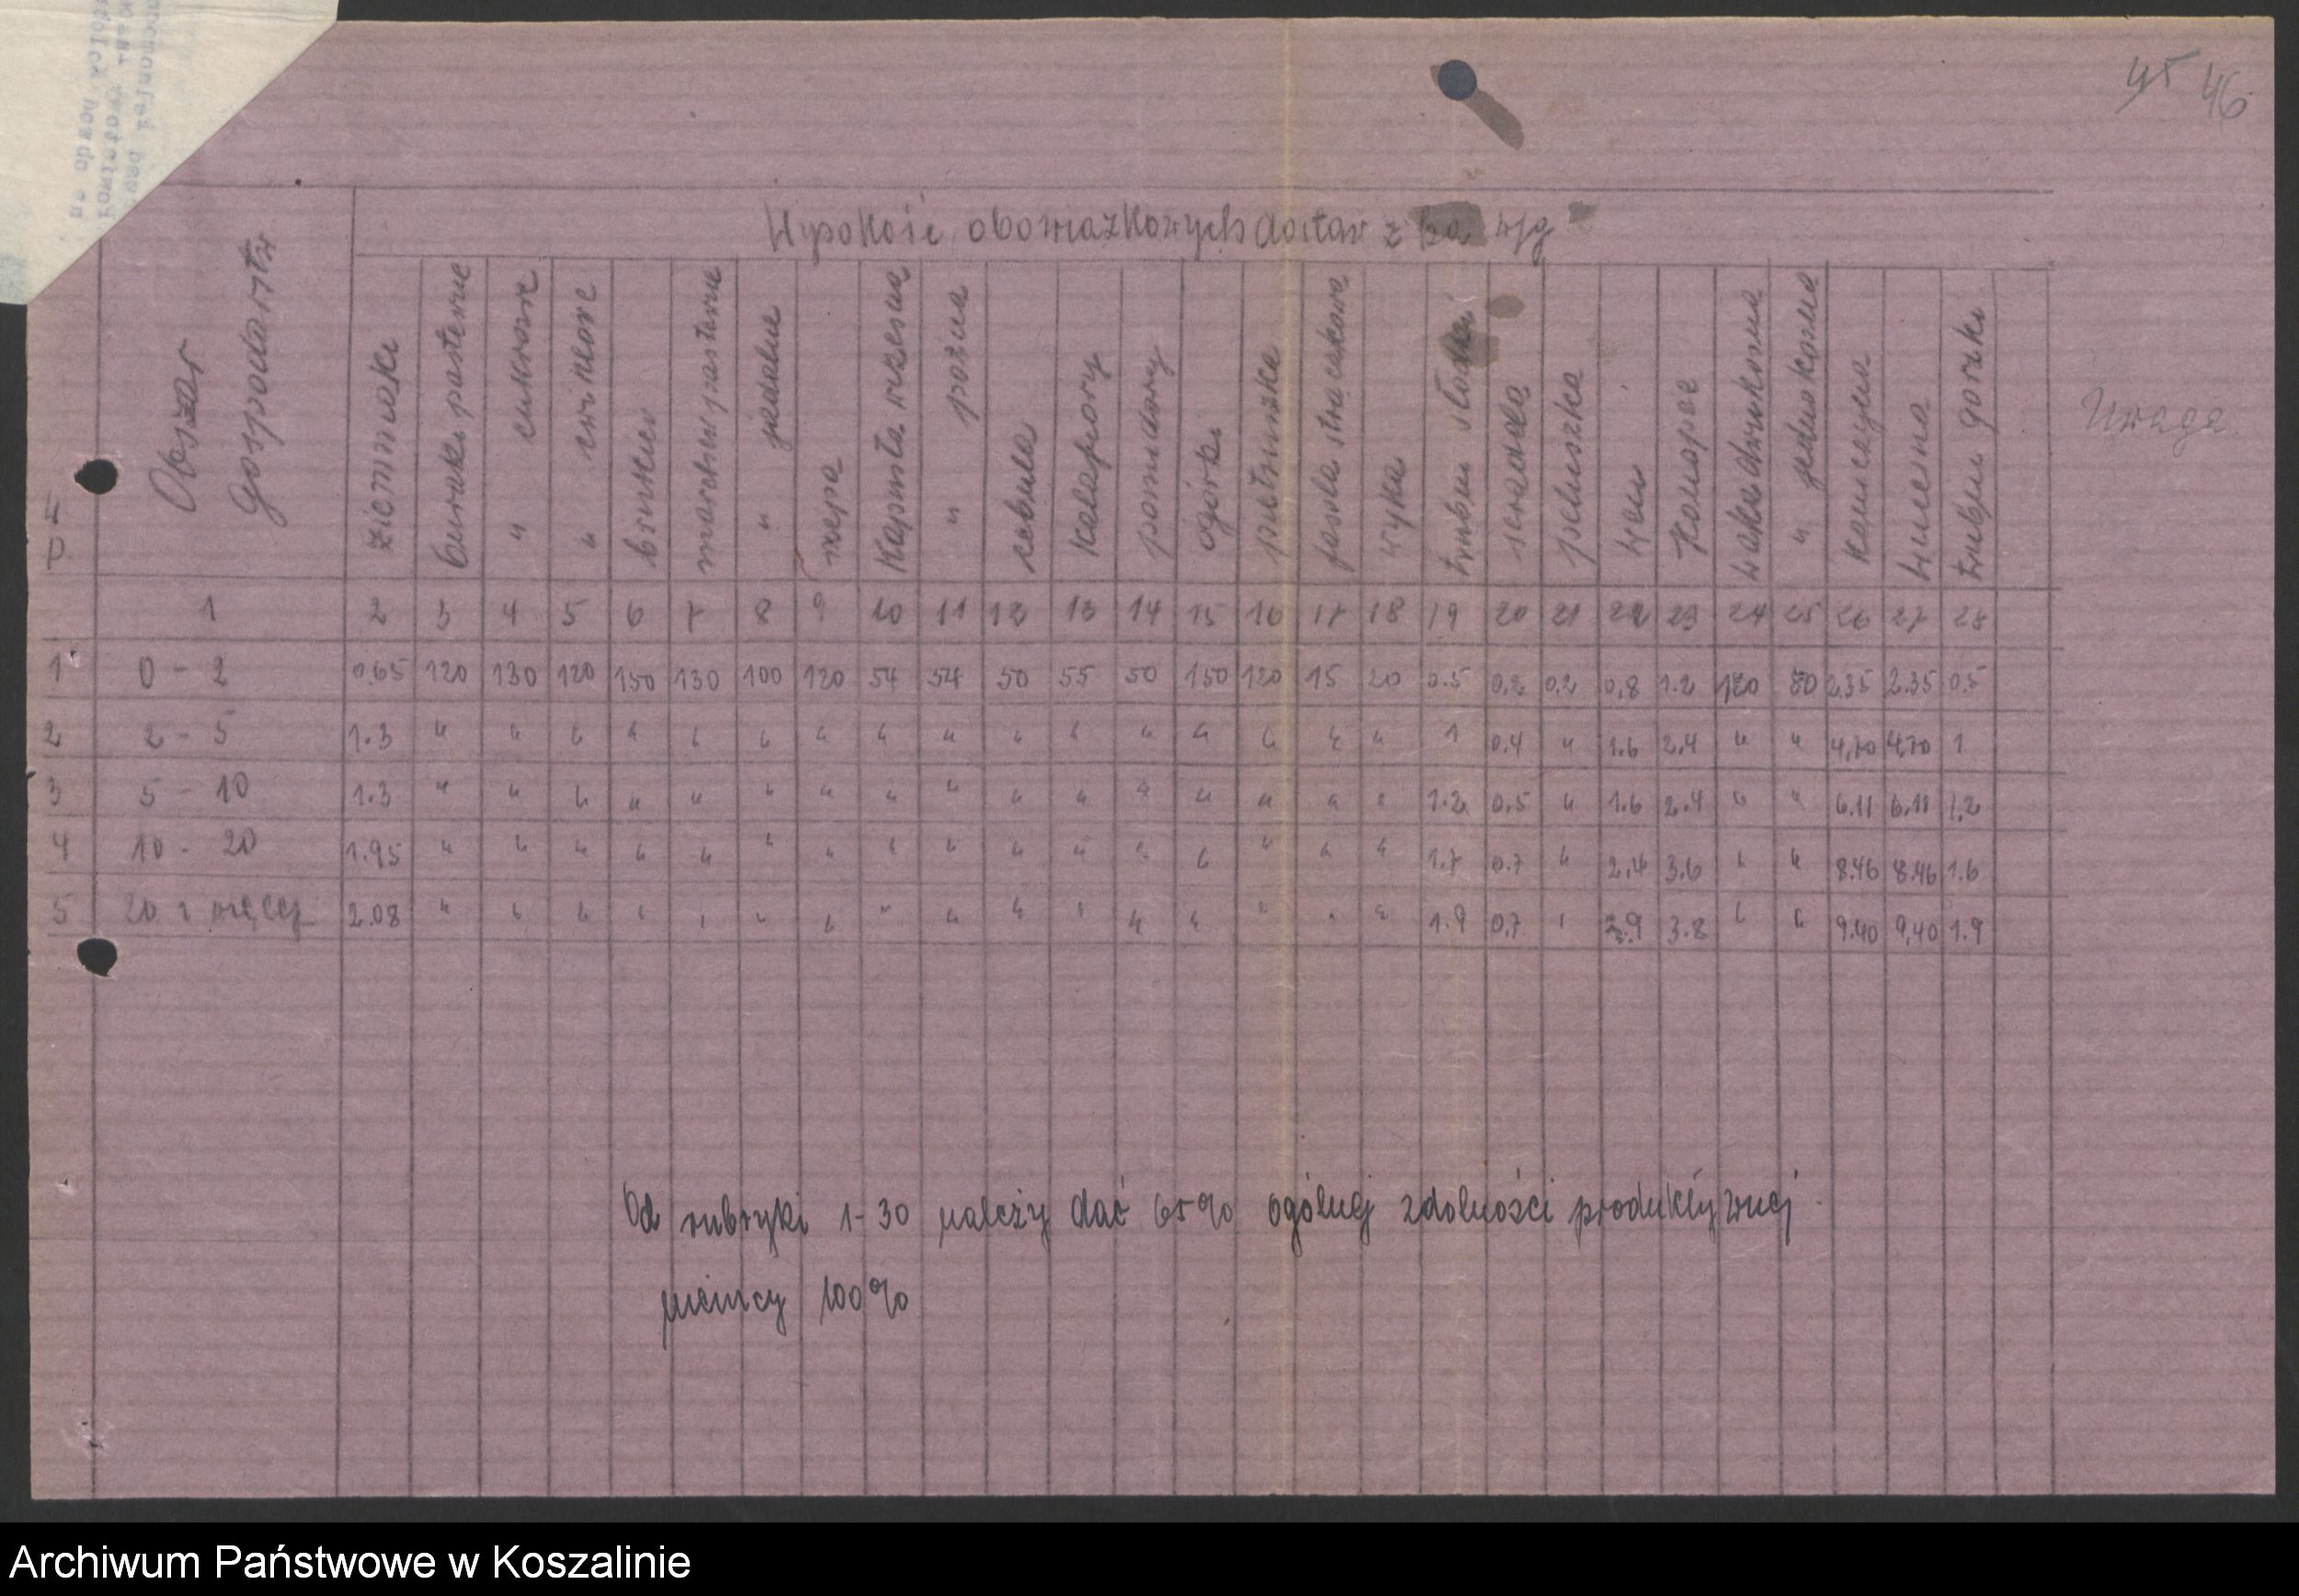 45 46
Wysokość obowiązkowych dostaw z ha w/g
L P.
Obszar
Gospodarstw
ziemniaki
buraki pastewne
" cukrowe
" ćwikłowe
brukiew
marchew pastewna
" jadalna
rzepa
Kapusta wczesna
" późna
cebula
Kalafiory
pomidory
ogórki
pietruszka
fasola strączkowa
wyka
łubin słodki
seradela
peluszka
len
Konopie
Łąka dwukośna
" jednokośna
Koniczyna
Lucerna
łubin gorzki
Uwaga
1 2 3 4 5 6 7 8 9 10 11 12 13 14 15 16 17 18 19 20 21 22 23 24 25 26 27 28
1 0 - 2 0.65 120 130 120 150 130 100 120 54 54 50 55 50 150 120 15 20 0.5 0.2 0.2 0,8 1.2 120 80 2,35 2.35 0.5
2 2 - 5 1.3 " " " " " " " " " " " " " " " " 1 0.4 " 1.6 2.4 " " 4,70 4,70 1
3 5 - 10 1.3 " " " " " " " " " " " " " " " " 1.2 0.5 " 1.6 2.4 " " 6.11 6,11 1.2
4 10 - 20 1.95 " " " " " " " " " " " " " " " " 1.7 0.7 " 2,4 3.6 " " 8.46 8.46 1.6
5 20 i więcej 2.08 " " " " " " " " " " " " " " " " 1.9 0.7 " 2.9 3.8 " " 9.40 9,40 1.9
Od rubryki 1-30 należy dać 65% ogólnej zdolności produktywnej
niemcy 100%
Archiwum Państwowe w Koszalinie